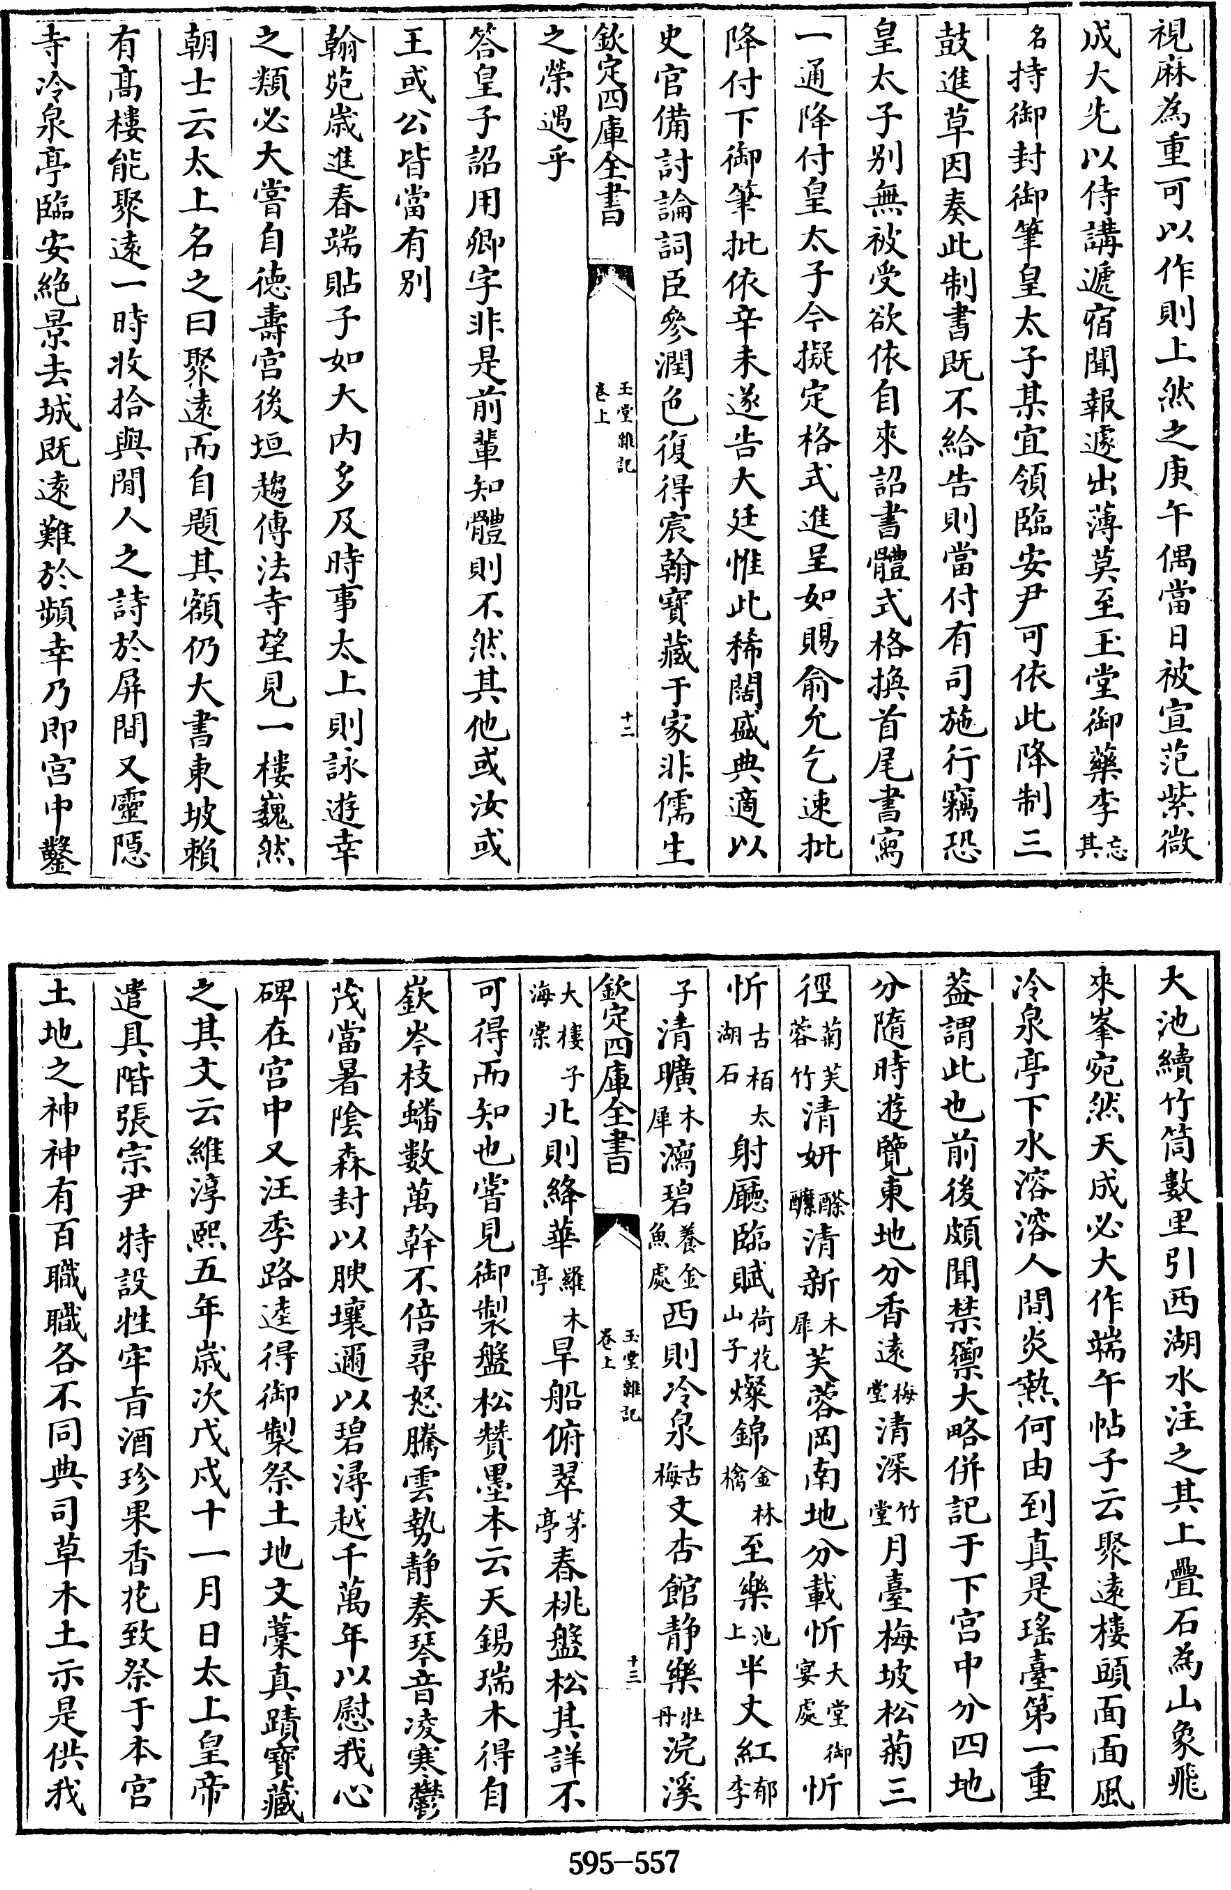 視麻為重可以作則上然之庚午偶當日被宣范紫微
成大先以侍講遞宿聞報遽出薄莫至玉堂御藥李忘其
名持御封御筆皇太子某宜領臨安尹可依此降制三
鼓進草因奏此制書既不給告則當付有司施行竊恐
皇太子別無被受欲依自來詔書體式格換首尾書寫
一通降付皇太子今擬定格式進呈如賜俞允乞速批
降付下御筆批依辛未遂告大廷惟此稀闊盛典適以
史官備討論詞臣參潤色復得宸翰寶藏于家非儒生
欽定四庫全書
玉堂雜記
卷上
十二
之榮遇乎
答皇子詔用卿字非是前輩知體則不然其他或汝或
王或公皆當有別
翰苑歲進春端貼子如大內多及時事太上則詠遊幸
之類必大嘗自德壽宮後垣趨傳法寺望見一樓巍然
朝士云太上名之曰聚遠而自題其額仍大書東坡賴
有高樓能聚遠一時收拾與閒人之詩於屏間又靈隱
寺冷泉亭臨安絕景去城既遠難於頻幸乃即宮中鑿
大池續竹筒數里引西湖水注之其上疊石為山象飛
來峯宛然天成必大作端午帖子云聚遠樓頭面面風
冷泉亭下水溶溶人間炎熱何由到真是瑤臺第一重
葢謂此也前後頗聞禁籞大略併記于下宮中分四地
分隨時遊覽東地分香遠梅堂清深竹堂月臺梅坡松菊三
徑菊芙蓉竹清妍酴醾清新木犀芙蓉岡南地分載忻大堂御宴處忻
忻古栢太湖石射廳臨賦荷花山子燦錦金林檎至樂池上半丈紅郁李
子清曠木犀瀉碧養金魚處西則冷泉古梅文杏館靜樂牡丹浣溪
欽定四庫全書
玉堂雜記
卷上
十三
大樓子海棠北則絳華羅木亭旱船俯翠茅亭春桃盤松其詳不
可得而知也嘗見御製盤松贊墨本云天錫瑞木得自
嶔岑枝蟠數萬幹不倍尋怒騰雲勢靜奏琴音凌寒鬱
茂當暑陰森封以腴壤邇以碧潯越千萬年以慰我心
碑在宮中又汪季路逵得御製祭土地文藁真蹟寶藏
之其文云維淳熙五年歲次戊戌十一月日太上皇帝
遣具階張宗尹特設牲牢旨酒珍果香花致祭于本宮
土地之神神有百職職各不同典司草木土示是供我
595-557